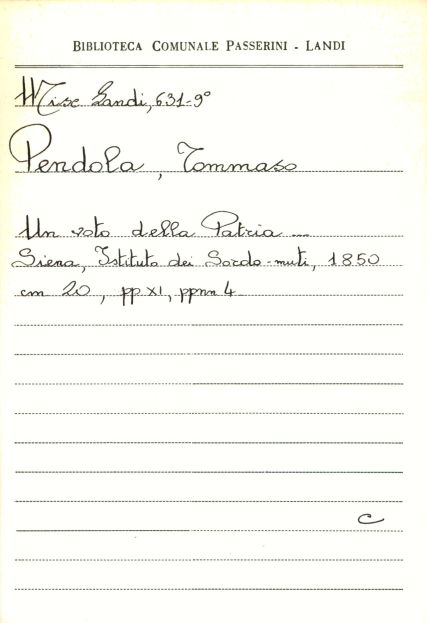 BIBLIOTECA COMUNALE PASSERINI - LANDI
Misc Landi, 631-9°
Pendola, Tommaso
Un voto della Patria ...
Siena, Istituto dei Sordo-muti, 1850
cm 20, pp XI, ppnn 4
C